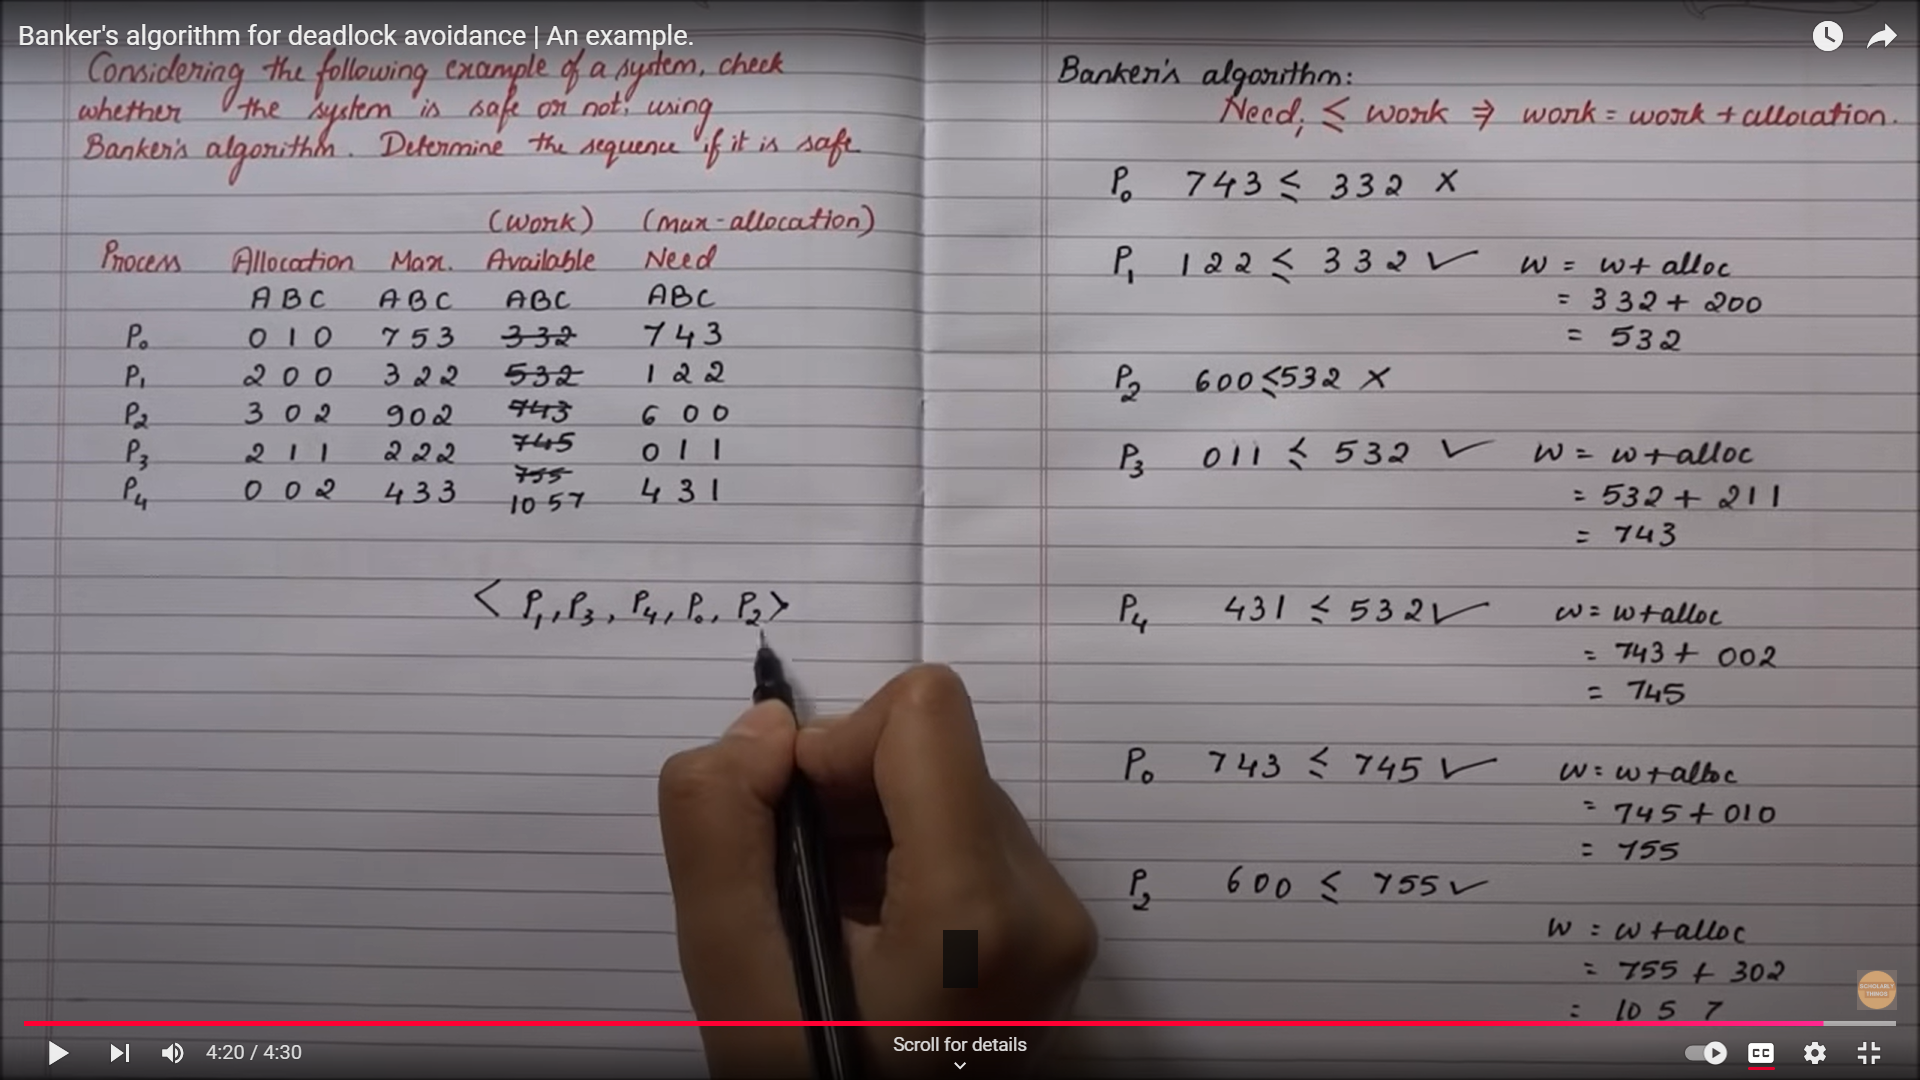 Banker's algorithm for deadlock avoidance | An example.
Considering the following example of a system, check
whether the system is safe or not, using
Banker's algorithm. Determine the sequence if it is safe
(Work) (max-allocation)
Process Allocation Max. Available Need
A B C A B C ABC ABC
P0 0 1 0 7 5 3 332 7 4 3
P1 2 0 0 3 2 2 532 1 2 2
P2 3 0 2 9 0 2 743 6 0 0
P3 2 1 1 2 2 2 745 0 1 1
755
P4 0 0 2 4 3 3 10 5 7 4 3 1
< P1, P3, P4, P0, P2 >
Banker's algorithm:
Needi ≤ work ⇒ work = work + allocation.
P0 743 ≤ 332 X
P1 122 ≤ 332 ✓ w = w + alloc
= 332 + 200
= 532
P2 600 ≤ 532 X
P3 011 ≤ 532 ✓ w = w + alloc
= 532 + 211
= 743
P4 431 ≤ 532 ✓ w = w + alloc
= 743 + 002
= 745
P0 743 ≤ 745 ✓ w = w + alloc
= 745 + 010
= 755
P2 600 ≤ 755 ✓
w = w + alloc
= 755 + 302
= 10 5 7
SCHOLARLY
THINGS
4:20 / 4:30
Scroll for details
CC